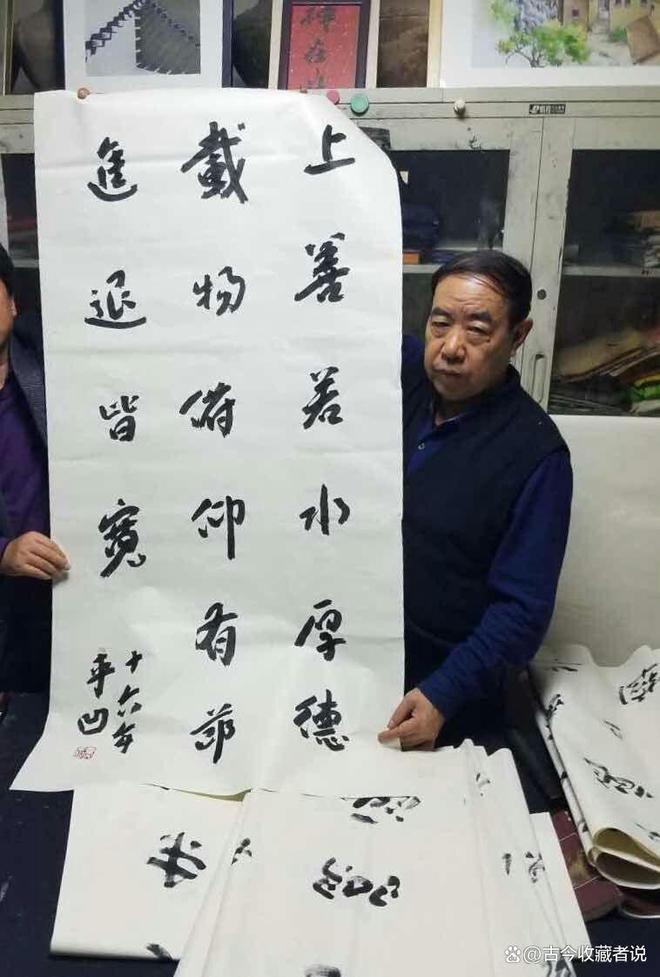 上善若水厚德
載物俯仰有節
進退皆寬
十六年
平凹
@古今收藏者说